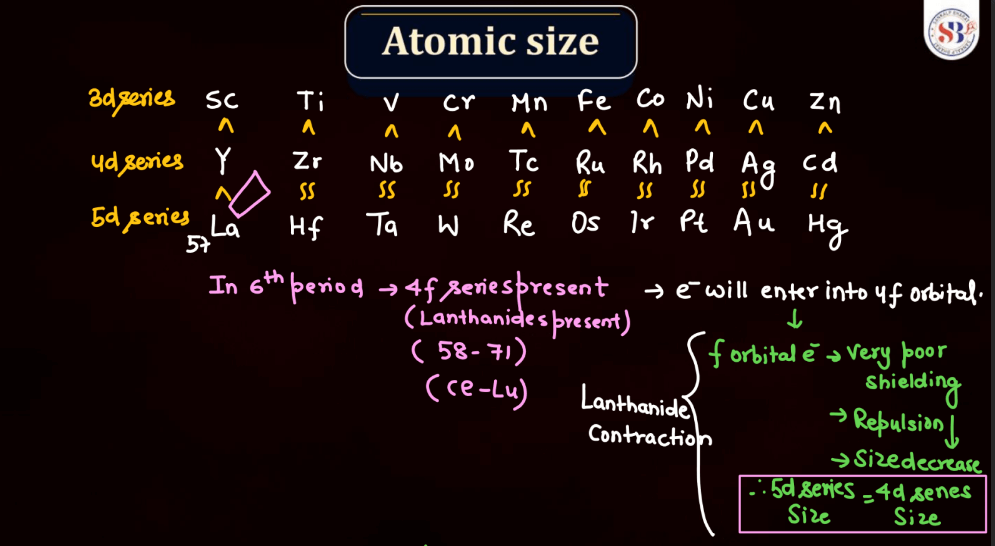 Atomic size
SB
3d series Sc Ti V Cr Mn Fe Co Ni Cu Zn
^ ^ ^ ^ ^ ^ ^ ^ ^ ^
4d series Y Zr Nb Mo Tc Ru Rh Pd Ag Cd
^ SS SS SS SS SS SS SS SS SS
5d series 57La Hf Ta W Re Os Ir Pt Au Hg
In 6th period → 4f series present → e⁻ will enter into 4f orbital.
(Lanthanides present) ↓
(58-71)
(Ce-Lu)
Lanthanide
Contraction
f orbital e⁻ → Very poor
shielding
→ Repulsion ↓
→ Size decrease
∴ 5d series = 4d series
Size Size